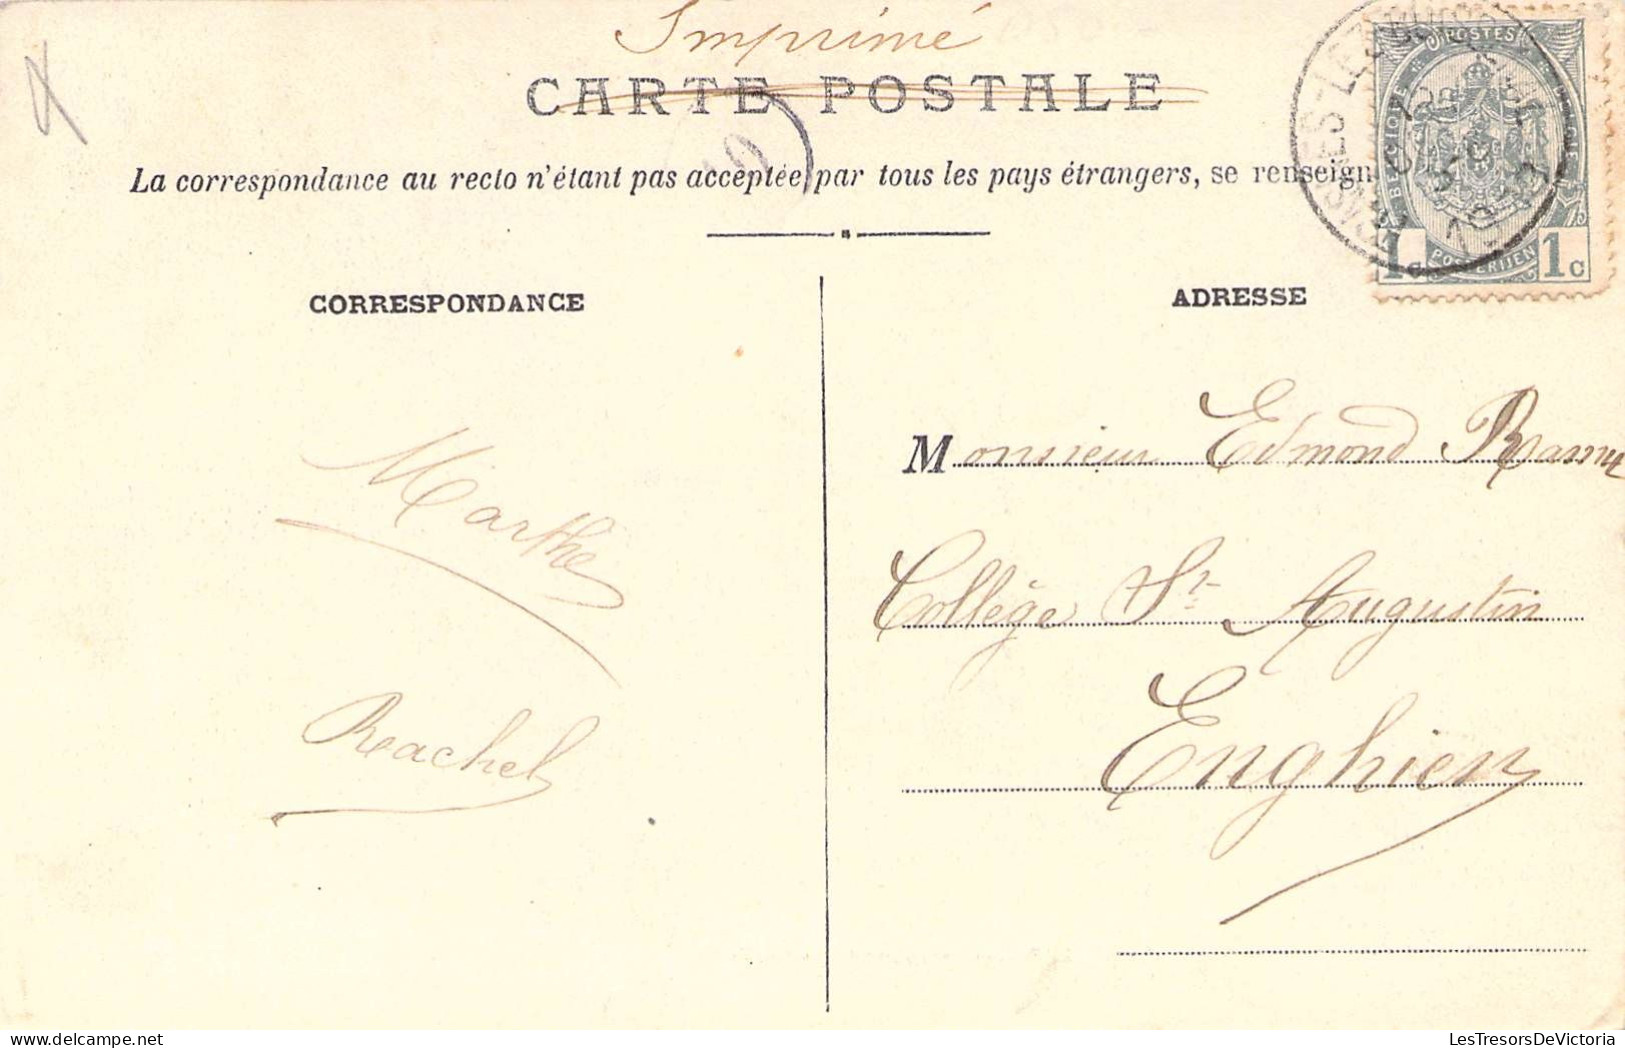 Imprimé
CARTE POSTALE
La correspondance au recto n'étant pas acceptée par tous les pays étrangers, se renseign
CORRESPONDANCE
ADRESSE
POSTES
BELGIQUE
POSTERIJEN
1c 1c
Monsieur Edmond
Collège St Augustin
Enghien
Marthe
Rachel
LesTresorsDeVictoria